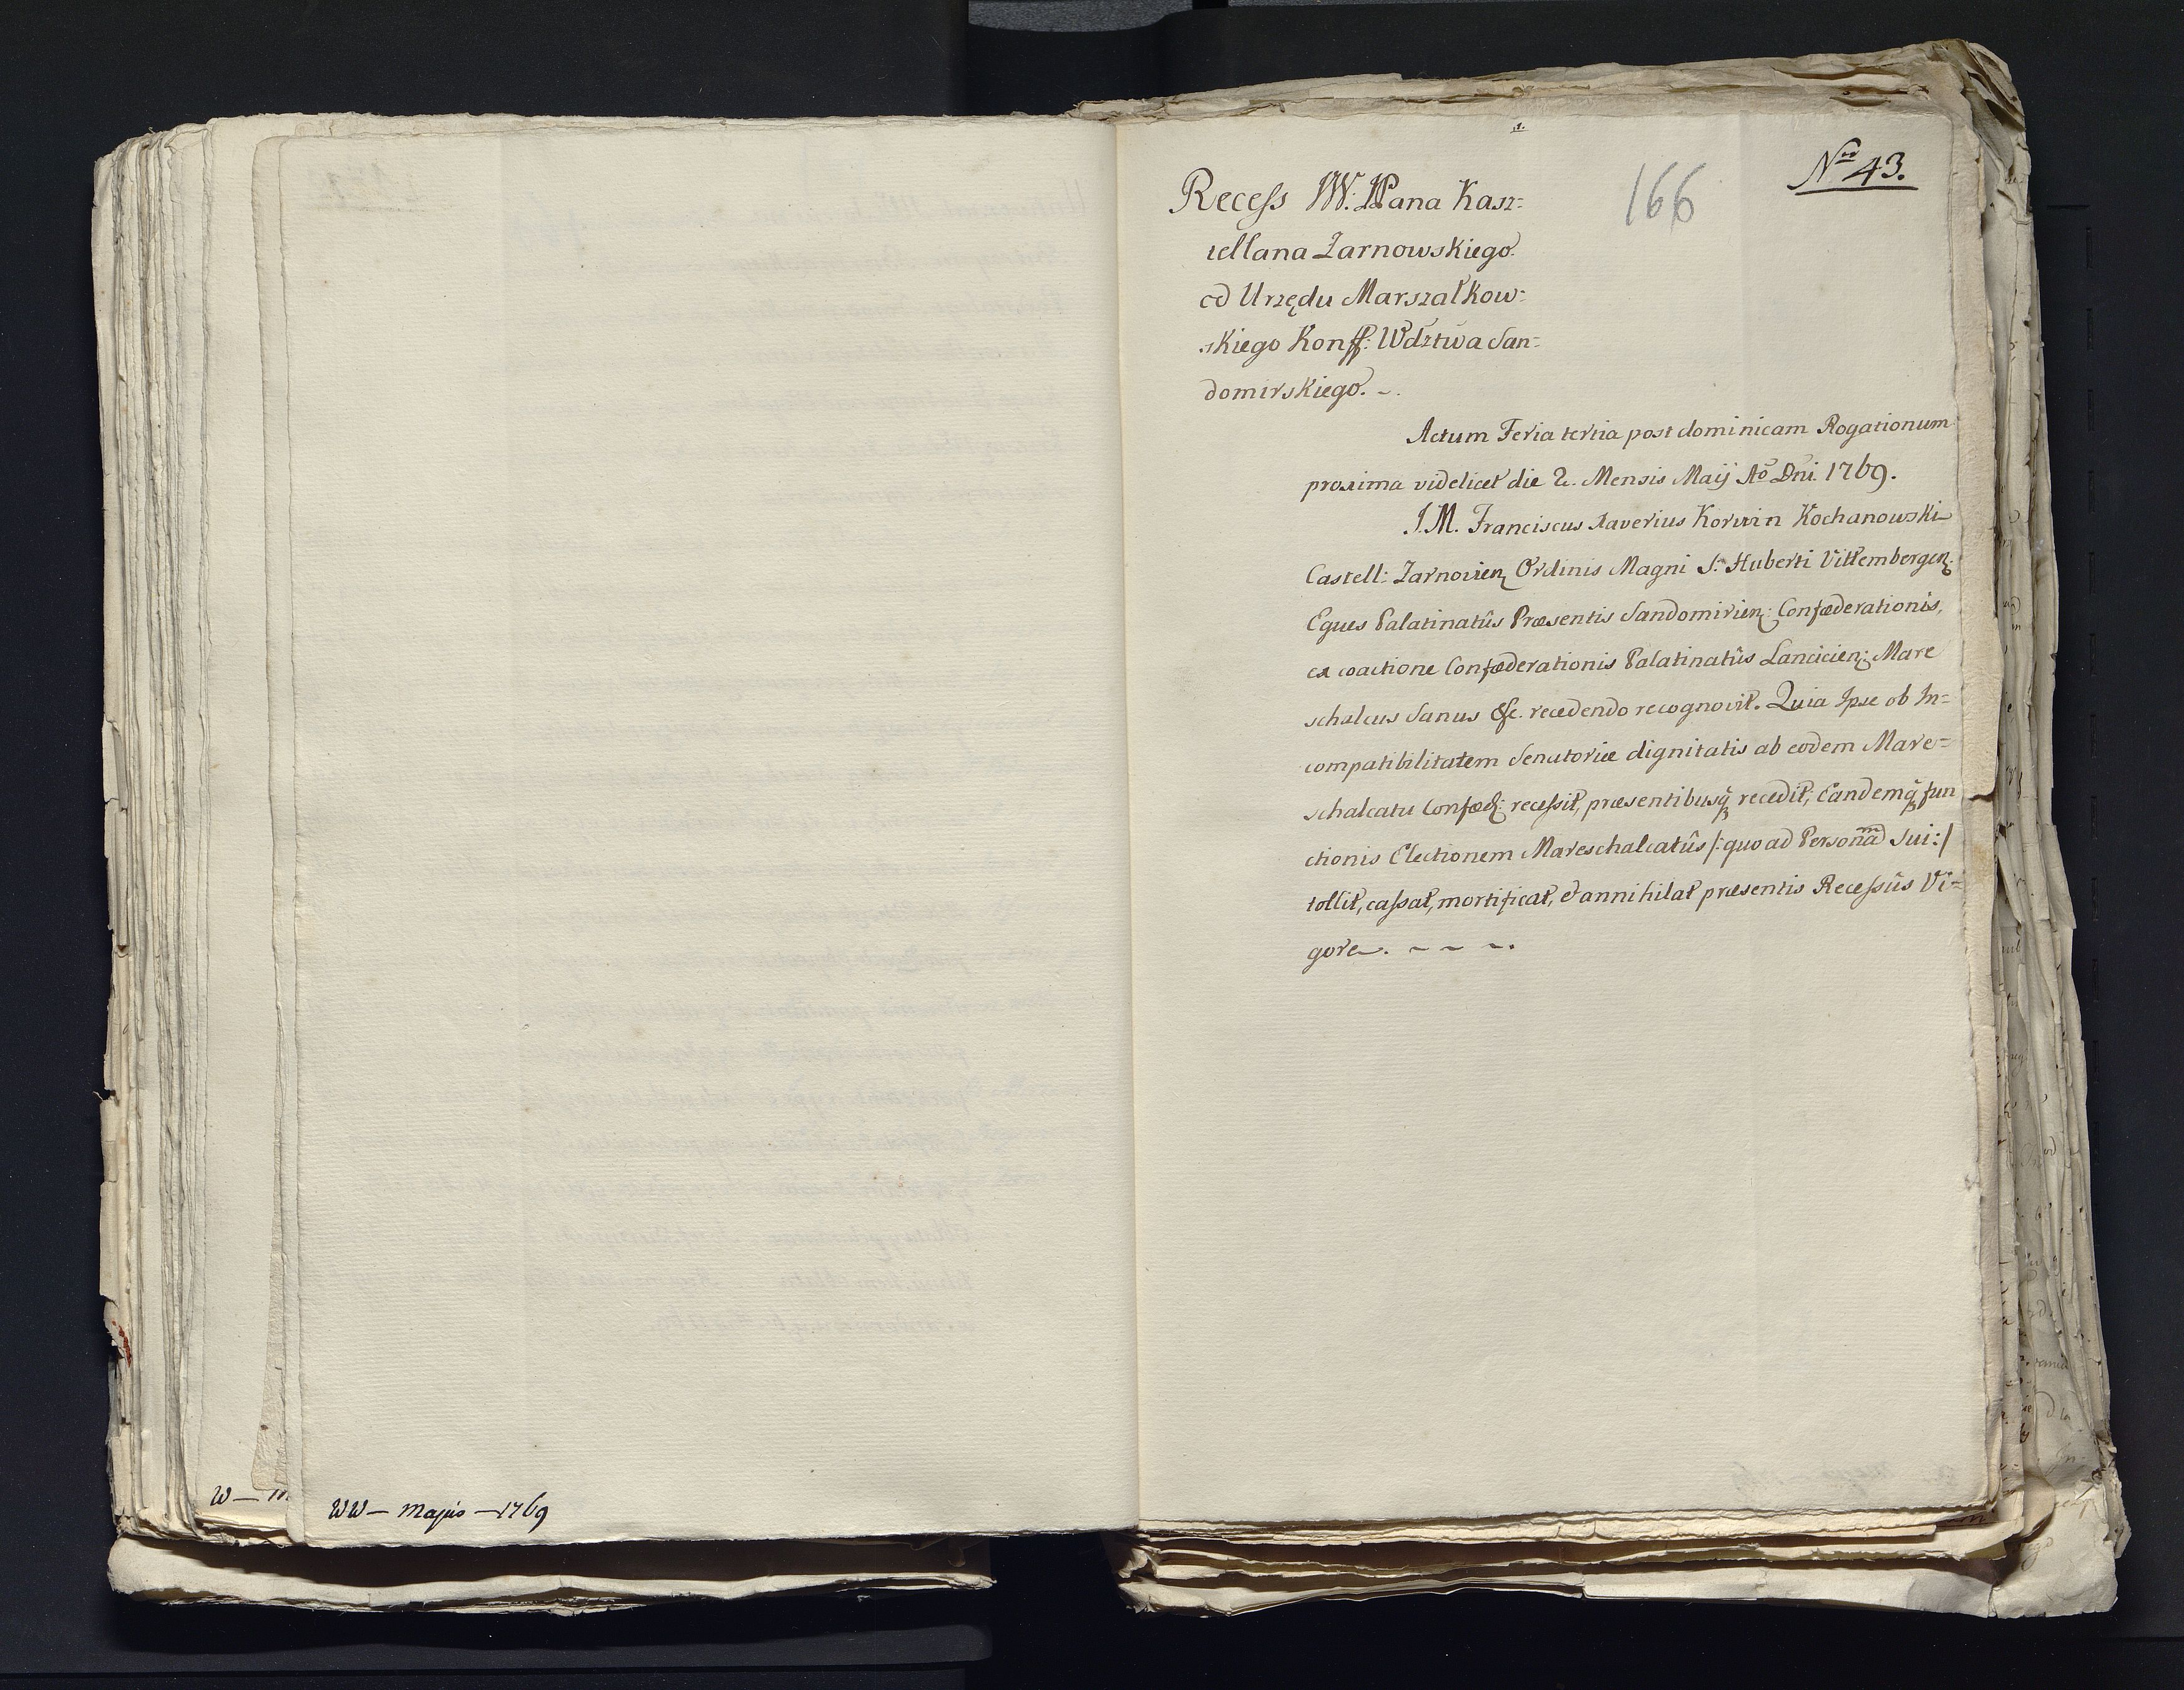 W — M
WW — Majus — 1769
1.
Nro 43.
166
Recess W. JPana Kasz:
tellana Żarnowskiego
od Urzędu Marszałkow:
skiego Konff: Wdztwa San=
domirskiego. ~.
Actum Feria tertia post dominicam Rogationum
proxima videlicet die 2. Mensis Maij Aō Dni. 1769.
J. M. Franciscus Xaverius Korwin Kochanowski
Castell: Zarnovien Ordinis Magni S. Huberti Vittembergen
Eques Palatinatûs Præsentis Sandomirien: Confæderationis,
ex coactione Confæderationis Palatinatûs Lancicien: Mare
schalcus Sanus &c. recedendo recognovit. Quia Ipse ob In=
compatibilitatem Senatoriæ dignitatis ab eodem Mare=
schalcatu Confæd: recessit, præsentibusq recedit, Eandemq fun
ctionis Electionem Mareschalcatûs /: quo ad Personam Sui :/
tollit, cassat, mortificat, et annihilat præsentis Recessûs Vi=
gore. ~ ~ ~.